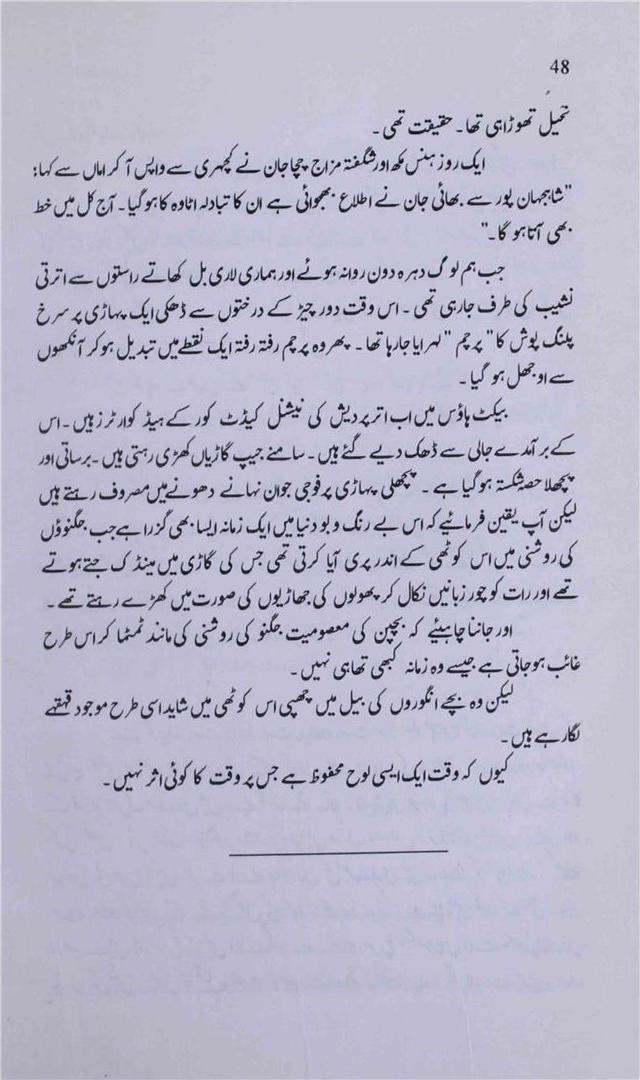 48
تخیل تھوڑا ہی تھا۔ حقیقت تھی۔
ایک روز ہنس مکھ اور شگفتہ مزاج چچا جان نے کچہری سے واپس آکر اماں سے کہا:
"شاہجہان پور سے بھائی جان نے اطلاع بھجوائی ہے ان کا تبادلہ اٹاوہ کا ہو گیا۔ آج کل میں خط
بھی آتا ہو گا۔"
جب ہم لوگ دہرہ دون روانہ ہوئے اور ہماری لاری بل کھاتے راستوں سے اترتی
نشیب کی طرف جا رہی تھی۔ اس وقت دور چیڑ کے درختوں سے ڈھکی ایک پہاڑی پر سرخ
پلنگ پوش کا "پرچم" لہرایا جا رہا تھا۔ پھر وہ پرچم رفتہ رفتہ ایک نقطے میں تبدیل ہو کر آنکھوں
سے اوجھل ہو گیا۔
بیکٹ ہاؤس میں اب اتر پردیش کی نیشنل کیڈٹ کور کے ہیڈ کوارٹرز ہیں۔ اس
کے برآمدے جالی سے ڈھک دیے گئے ہیں۔ سامنے جیپ گاڑیاں کھڑی رہتی ہیں۔ برساتی اور
پچھلا حصہ شکستہ ہو گیا ہے۔ پچھلی پہاڑی پر فوجی جوان نہانے دھونے میں مصروف رہتے ہیں
لیکن آپ یقین فرمائیے کہ اس بے رنگ و بو دنیا میں ایک زمانہ ایسا بھی گزرا ہے جب جگنوؤں
کی روشنی میں اس کوٹھی کے اندر پری آیا کرتی تھی جس کی گاڑی میں مینڈک جتے ہوتے
تھے اور رات کو چور زبانیں نکال کر پھولوں کی جھاڑیوں کی صورت میں کھڑے رہتے تھے۔
اور جاننا چاہیئے کہ بچپن کی معصومیت جگنو کی روشنی کی مانند ٹمٹما کر اس طرح
غائب ہو جاتی ہے جیسے وہ زمانہ کبھی تھا ہی نہیں۔
لیکن وہ بچے انگوروں کی بیل میں چھپی اس کوٹھی میں شاید اسی طرح موجود قہقہے
لگا رہے ہیں۔
کیوں کہ وقت ایک ایسی لوح محفوظ ہے جس پر وقت کا کوئی اثر نہیں۔